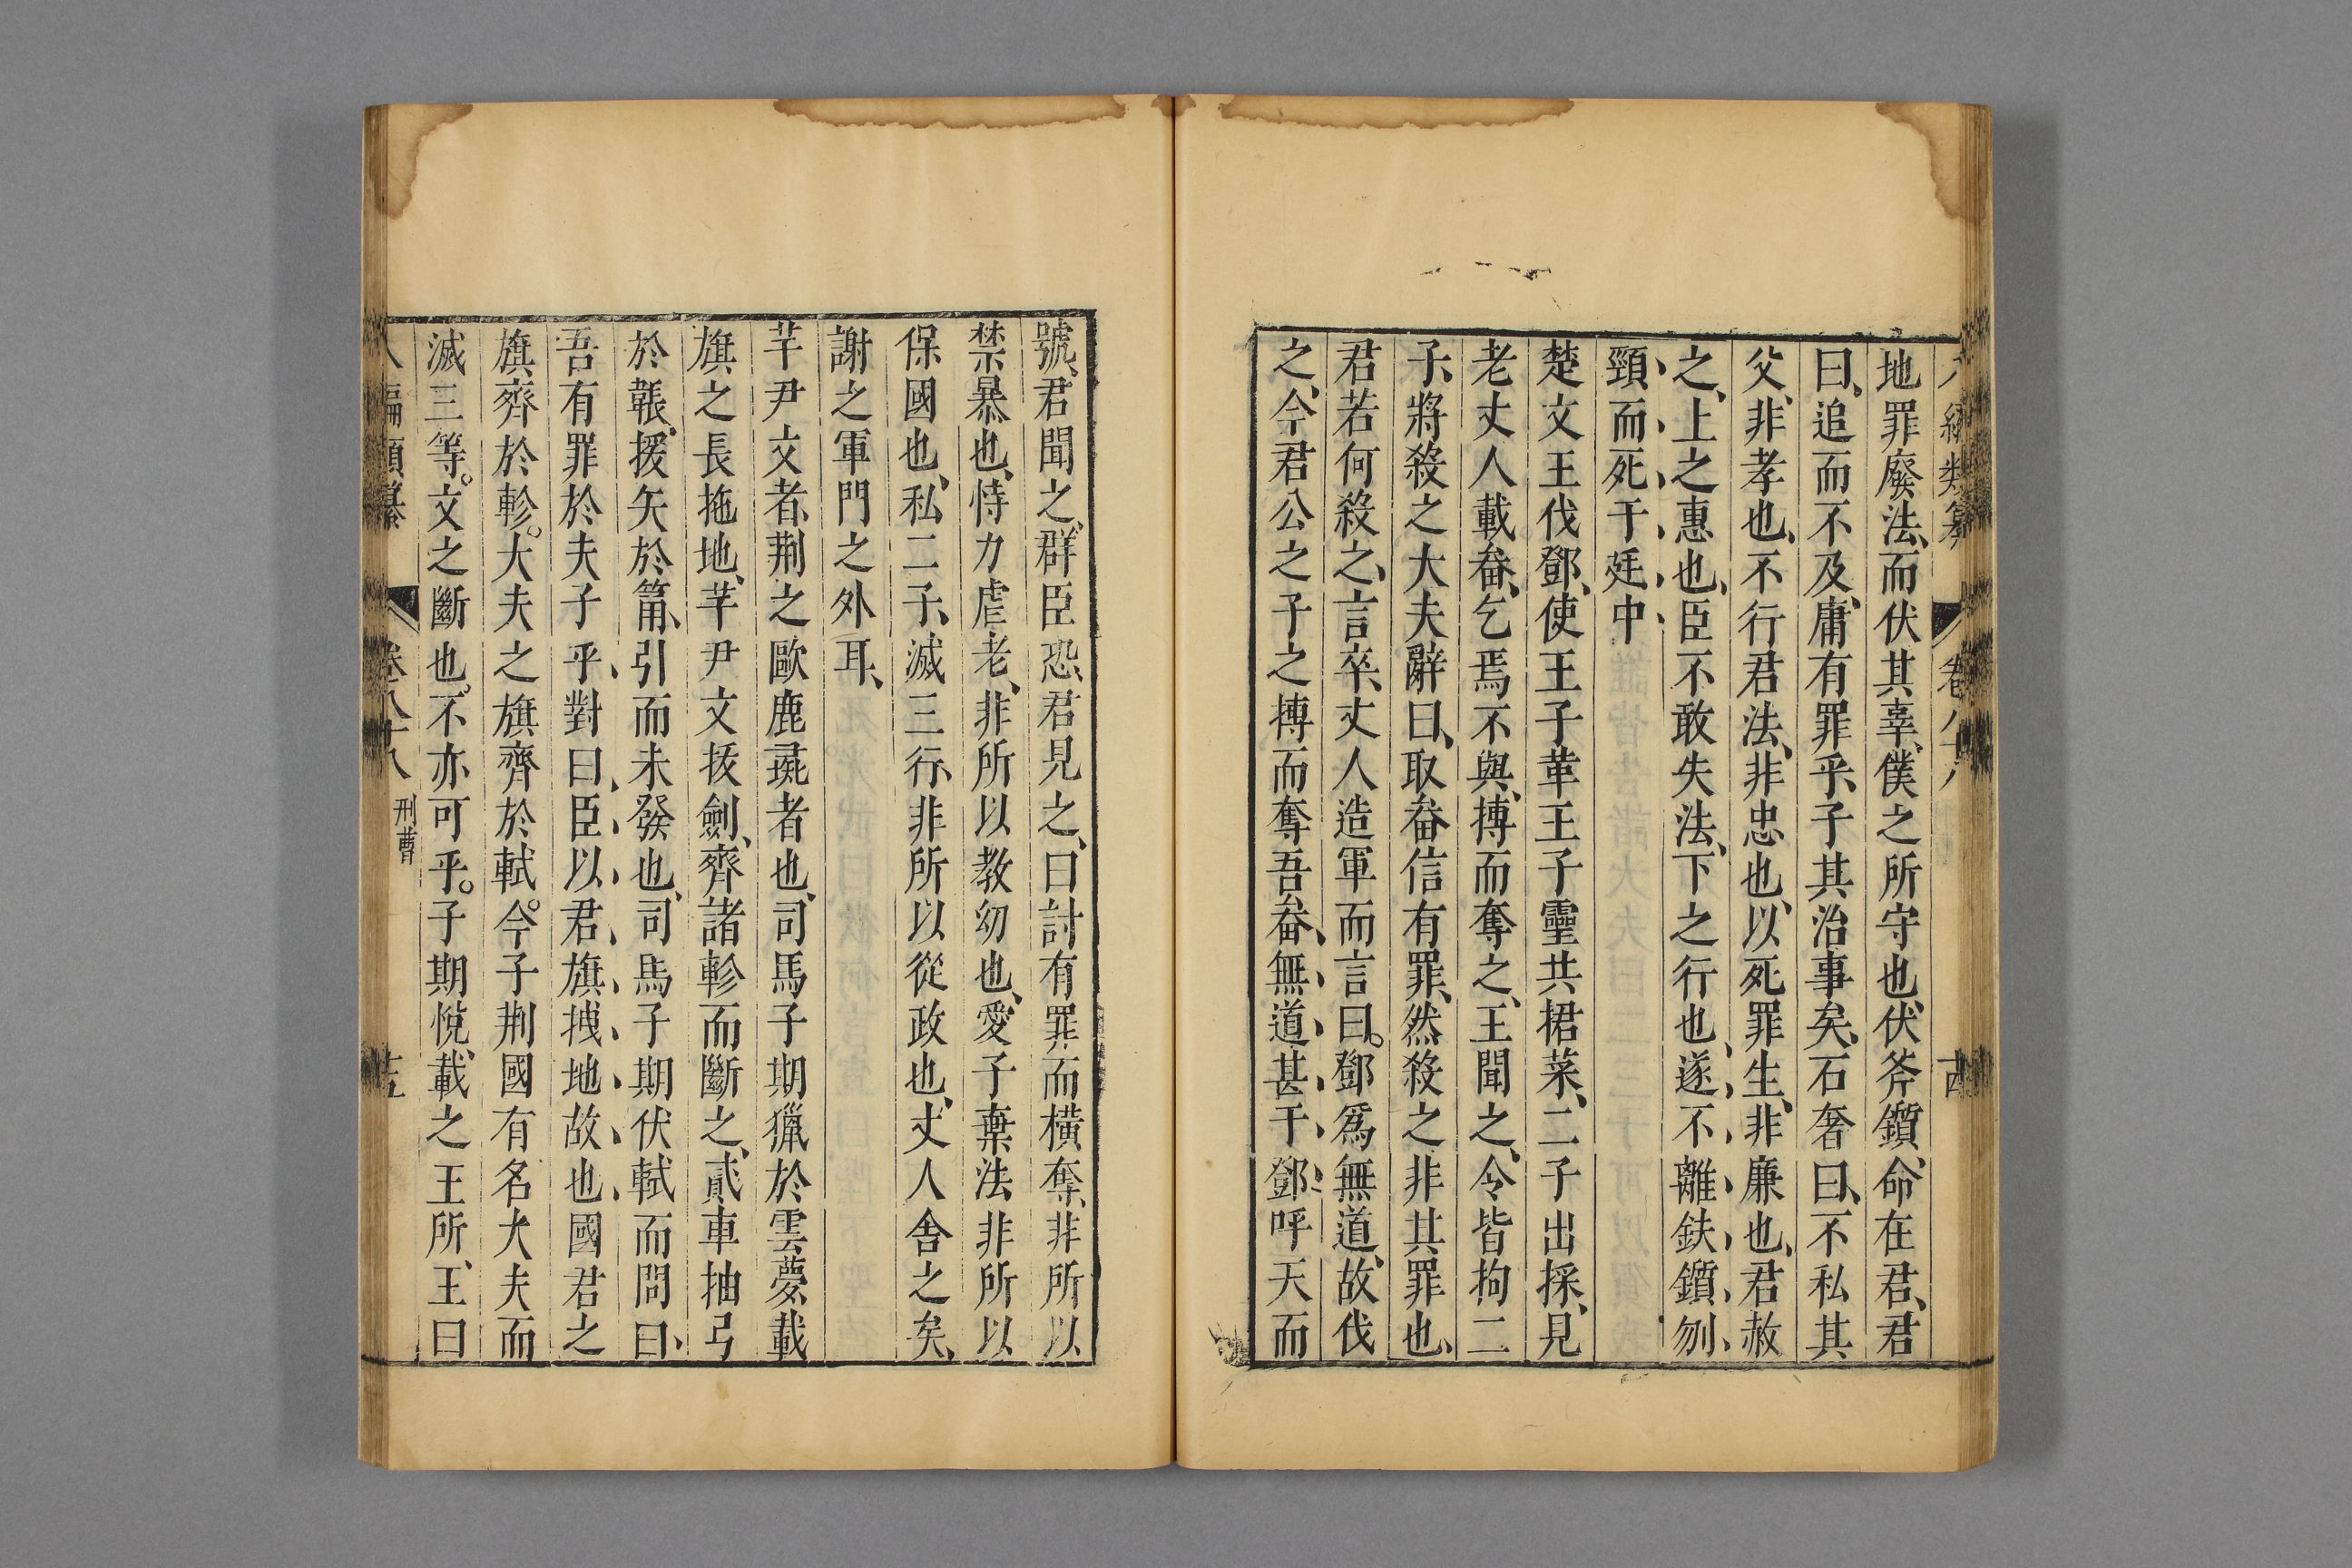 八編類纂 卷八十八 十四
地罪廢法、而伏其辜、僕之所守也、伏斧鑕、命在君、君
曰、追而不及、庸有罪乎、子其治事矣、石奢曰、不私其
父、非孝也、不行君法、非忠也、以死罪生、非廉也、君赦
之、上之惠也、臣不敢失法、下之行也、遂不離鈇鑕刎
頸而死于廷中
楚文王伐鄧、使王子革王子靈共捃菜、二子出採、見
老丈人載畚、乞焉不與、搏而奪之、王聞之、令皆拘二
子、將殺之大夫辭曰、取畚信有罪、然殺之非其罪也、
君若何殺之、言卒、丈人造軍而言曰。鄧爲無道、故伐
之、今君公之子之搏而奪吾畚、無道甚于鄧呼天而
號、君聞之、群臣恐、君見之、曰討有罪而橫奪、非所以
禁暴也、恃力虐老、非所以教幼也、愛子棄法非所以
保國也、私二子、滅三行、非所以從政也、丈人舍之矣、
謝之軍門之外耳、
芊尹文者、荆之歐鹿彘者也、司馬子期獵於雲夢、載
旗之長拖地、芊尹文拔劍、齊諸軫而斷之、貳車抽弓
於韔、援矢於筩、引而未發也、司馬子期伏軾而問曰、
吾有罪於夫子乎、對曰、臣以君旗拽地故也、國君之
旗、齊於軫。大夫之旗齊於軾。今子荆國有名大夫而
滅三等。文之斷也、不亦可乎。子期悅、載之王所、王曰
八編類纂 卷八十八 刑曹 十五